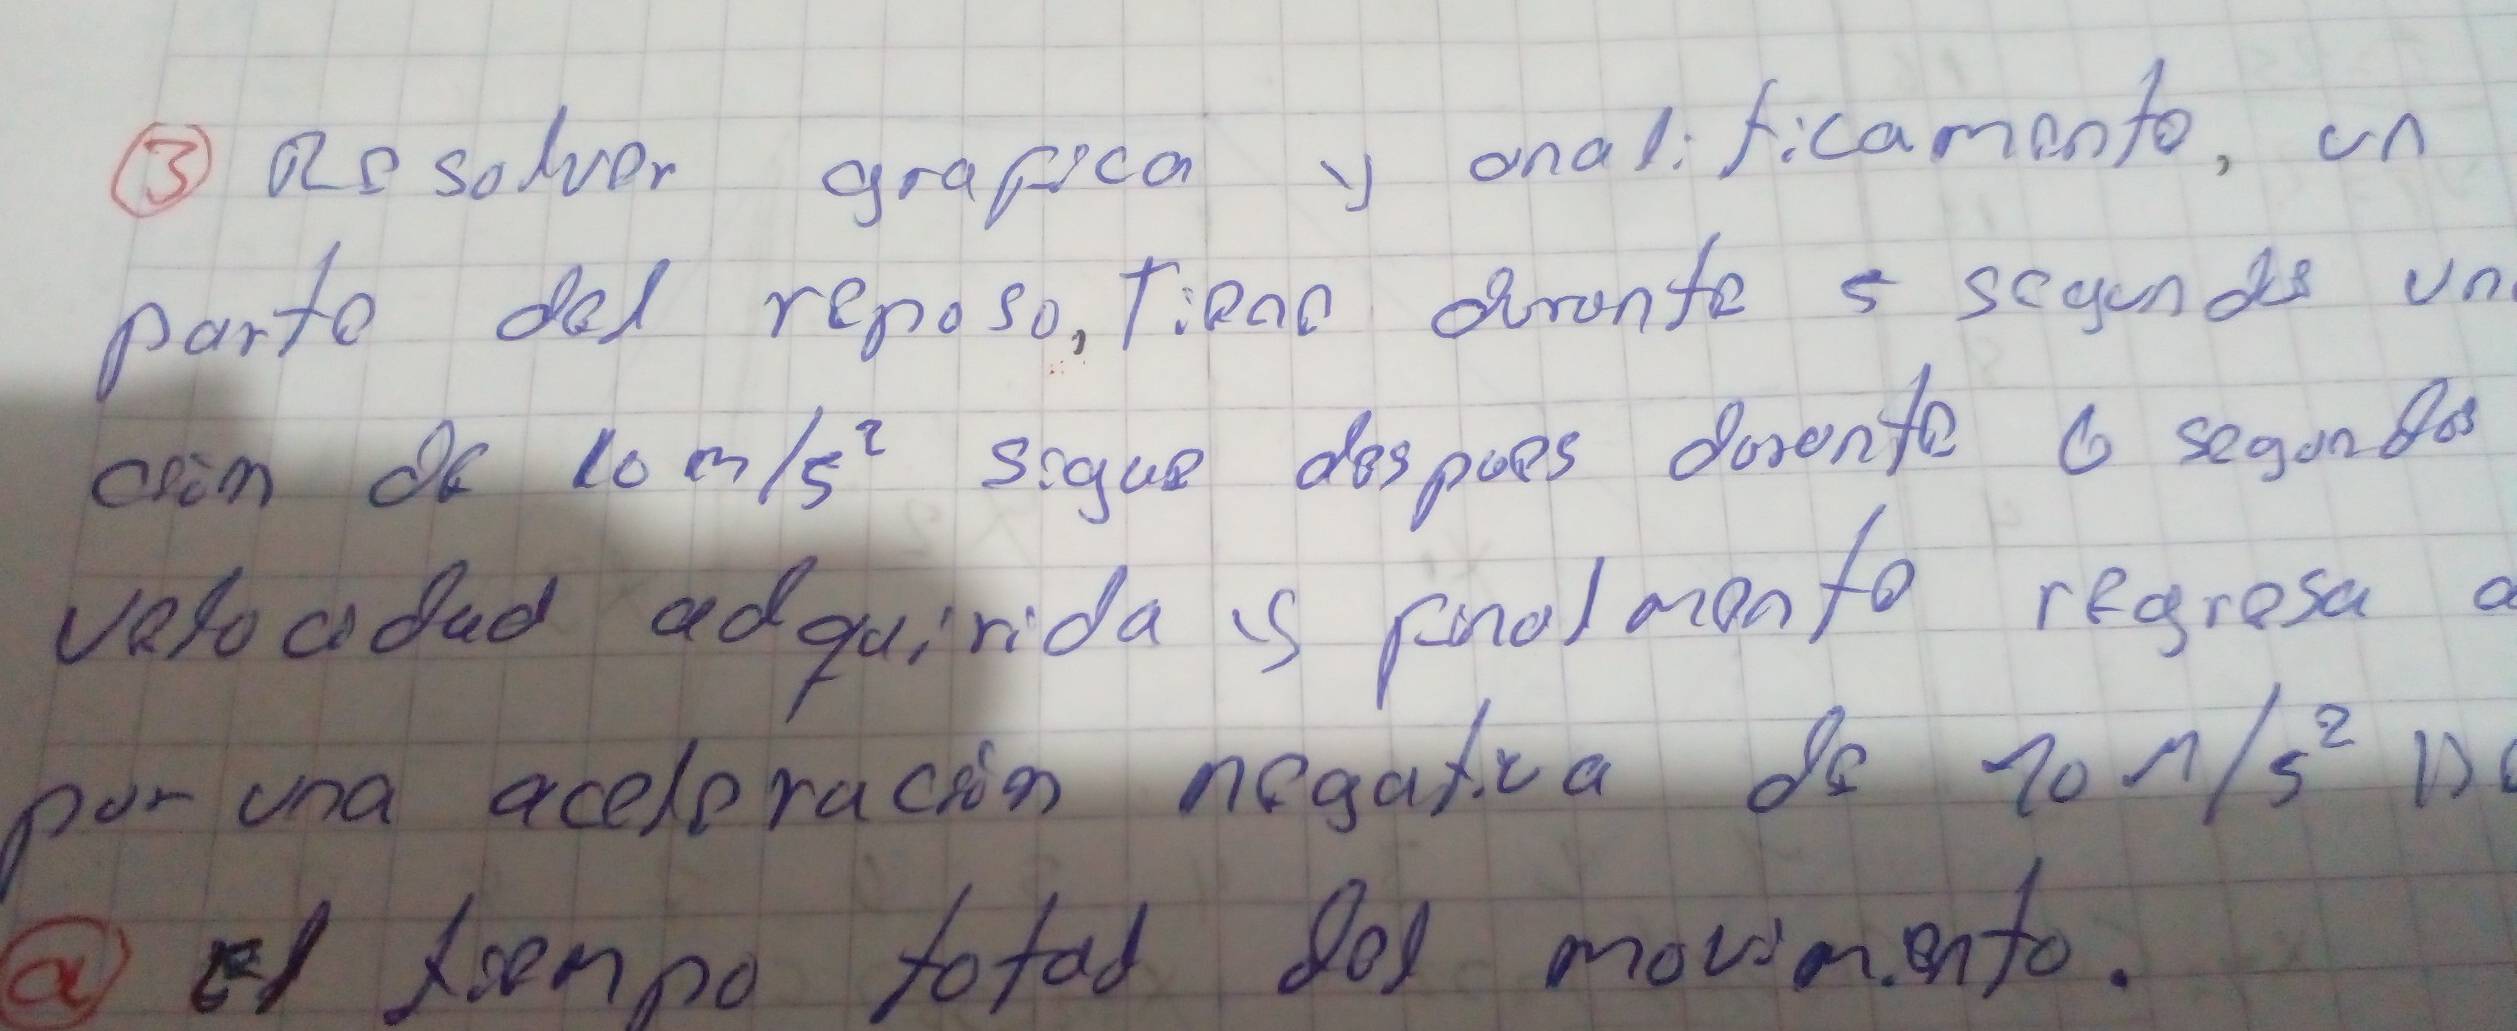 ③ Resolver grafica y analiticamente, un
parte del reposo, Tiene durante 5 segundos un
ción de 10 m/s² sigue despues durante 6 segundos
velocidad adquirida y finalmente regresa a
por una aceleración negativa de 10 m/s² De
ⓐ El tiempo total del movimiento.